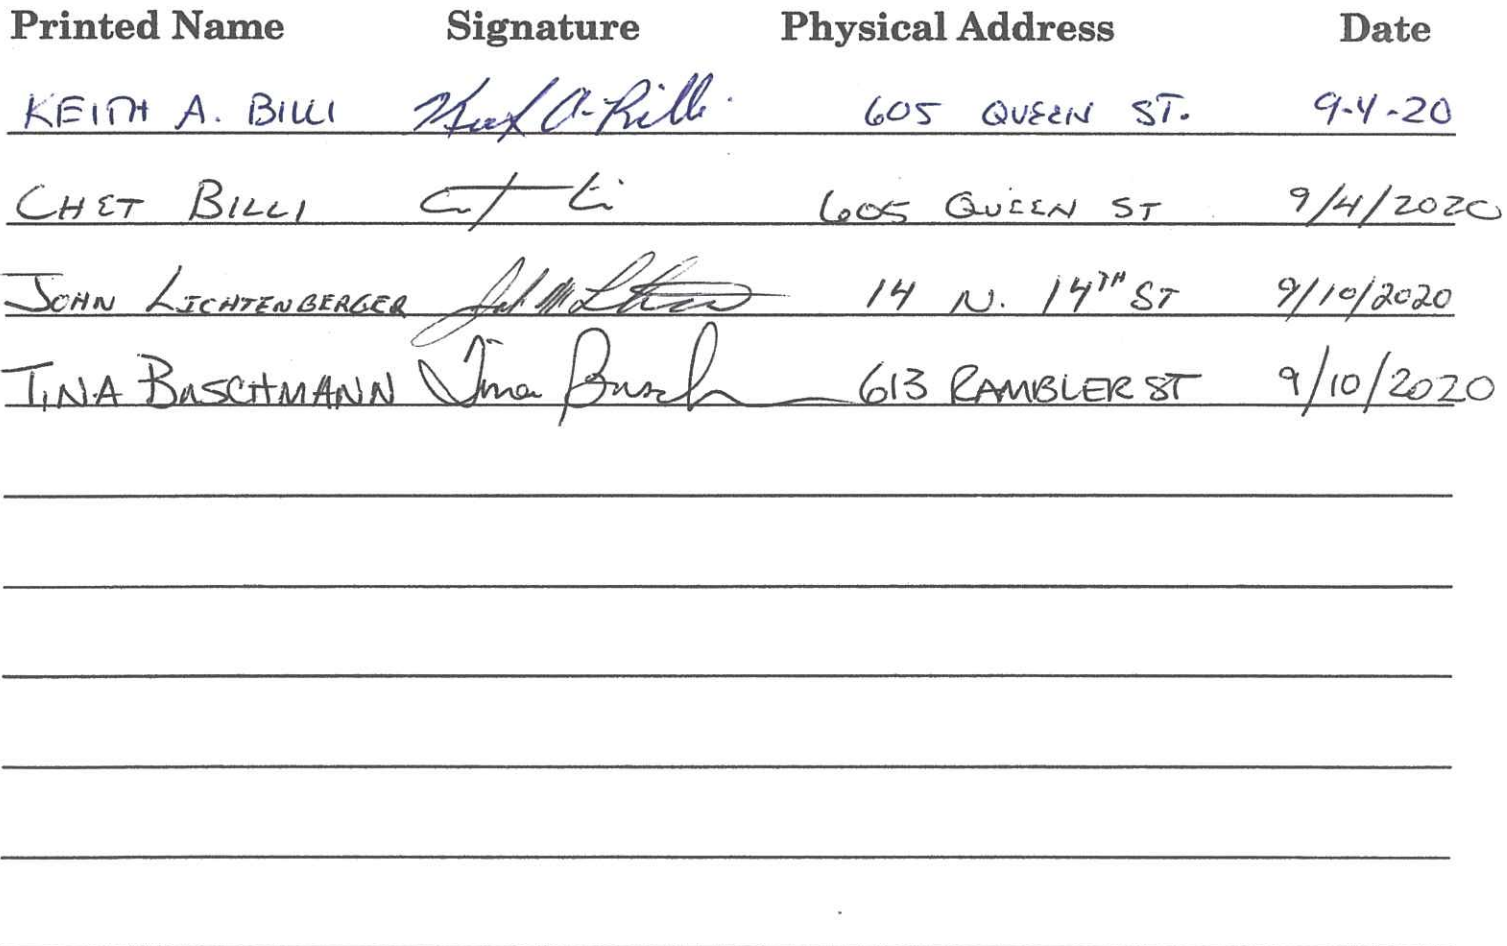 Printed Name Signature Physical Address Date
KEITH A. BILLI Keith A. Billi 605 QUEEN ST. 9-4-20
CHET BILLI 605 QUEEN ST 9/4/2020
JOHN LICHTENBERGER 14 N. 14TH ST 9/10/2020
TINA BUSCHMANN Tina Busch 613 RAMBLER ST 9/10/2020